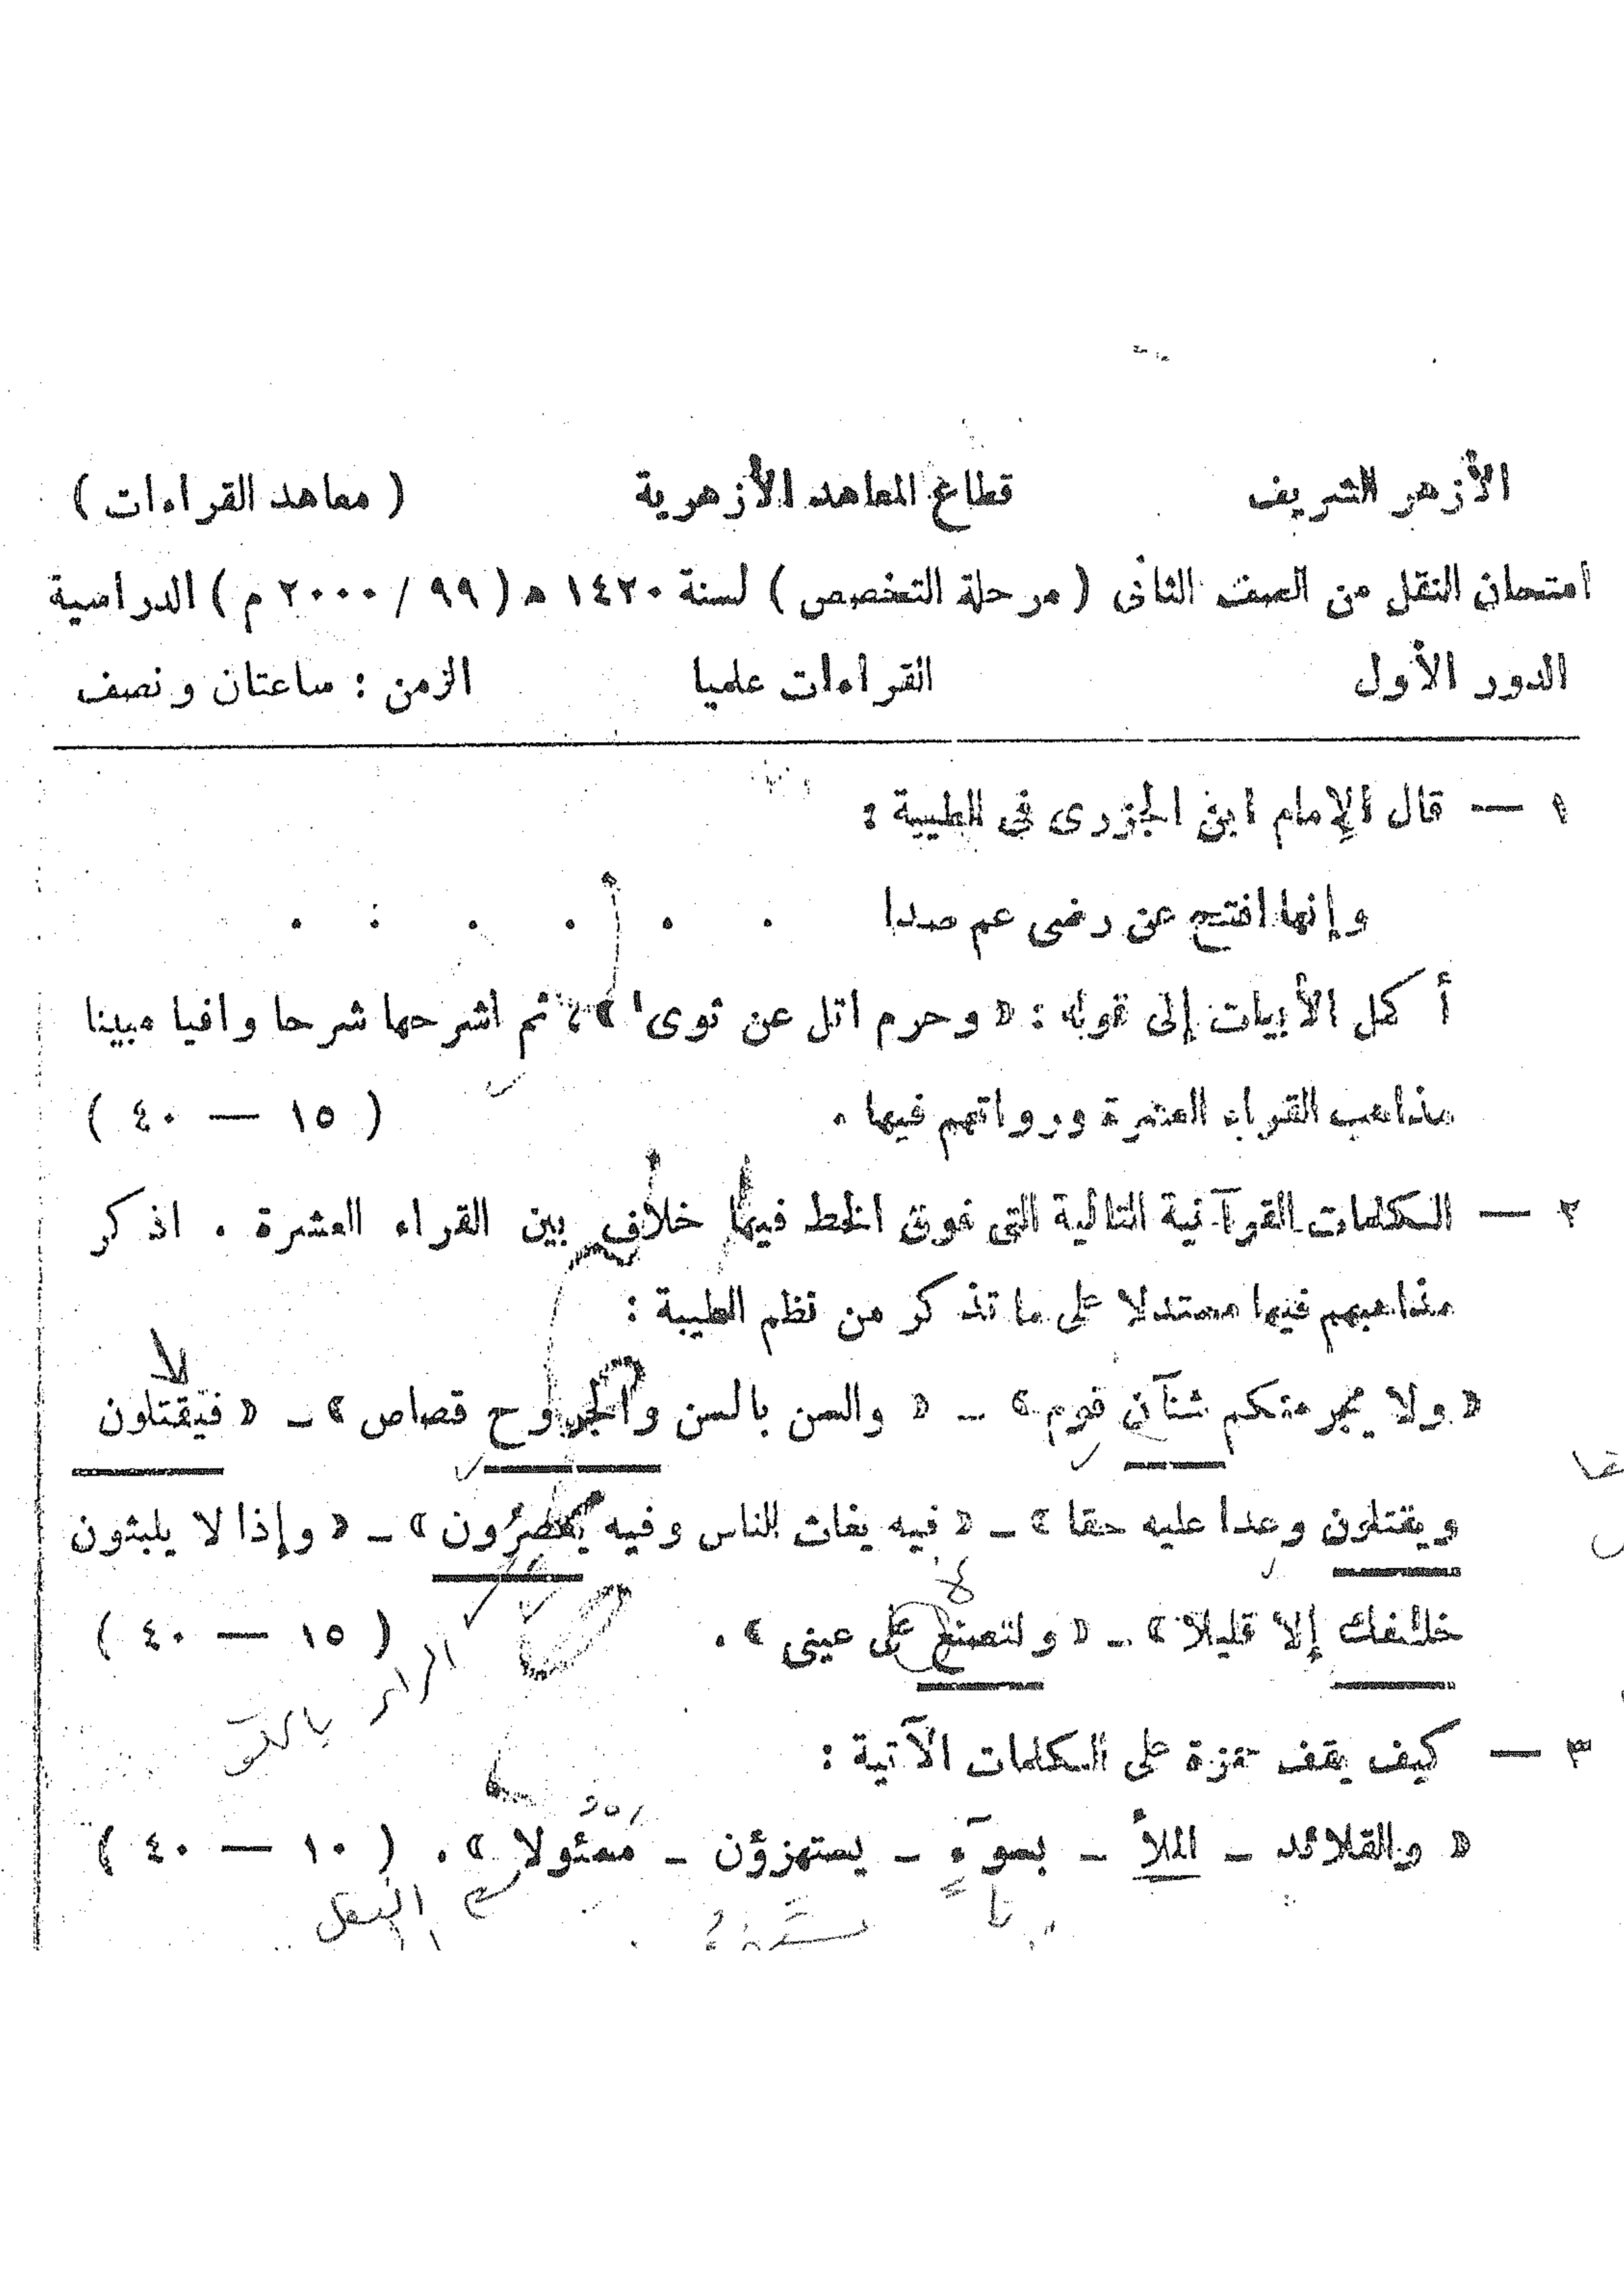 الأزهر الشريف قطاع المعاهد الأزهرية ( معاهد القراءات )
امتحان النقل من الصف الثانى ( مرحلة التخصص ) لسنة ١٤٢٠ ه ( ٩٩ / ٢٠٠٠ م ) الدراسية
الدور الأول القراءات علميا الزمن : ساعتان ونصف
١ — قال الإمام ابن الجزرى فى الطيبة :
وإنها افتح عن رضى عم صدا . . . . . .
أ كمل الأبيات إلى قوله : « وحرم اتل عن ثوى » ، ثم اشرحها شرحا وافيا مبينا
مذاهب القراء العشرة ورواتهم فيها . ( ١٥ — ٤٠ )
٢ — الكلمات القرآنية التالية التى فوق الخط فيها خلاف بين القراء العشرة . اذكر
مذاهبهم فيها مستدلا على ما تذكر من نظم الطيبة :
« ولا يجرمنكم شنآن قوم » – « والسن بالسن والجروح قصاص » – « فيقتلون
ويقتلون وعدا عليه حقا » – « فيه يغاث الناس وفيه يعصرون » – « وإذا لا يلبثون
خلفك إلا قليلا » – « ولتصنع على عينى » . ( ١٥ — ٤٠ )
الراء بالكسر
٣ — كيف يقف حمزة على الكلمات الآتية :
« والقلائد – الملأ – بسوءٍ – يستهزؤن – مسئولا » . ( ١٠ — ٤٠ )
النقل